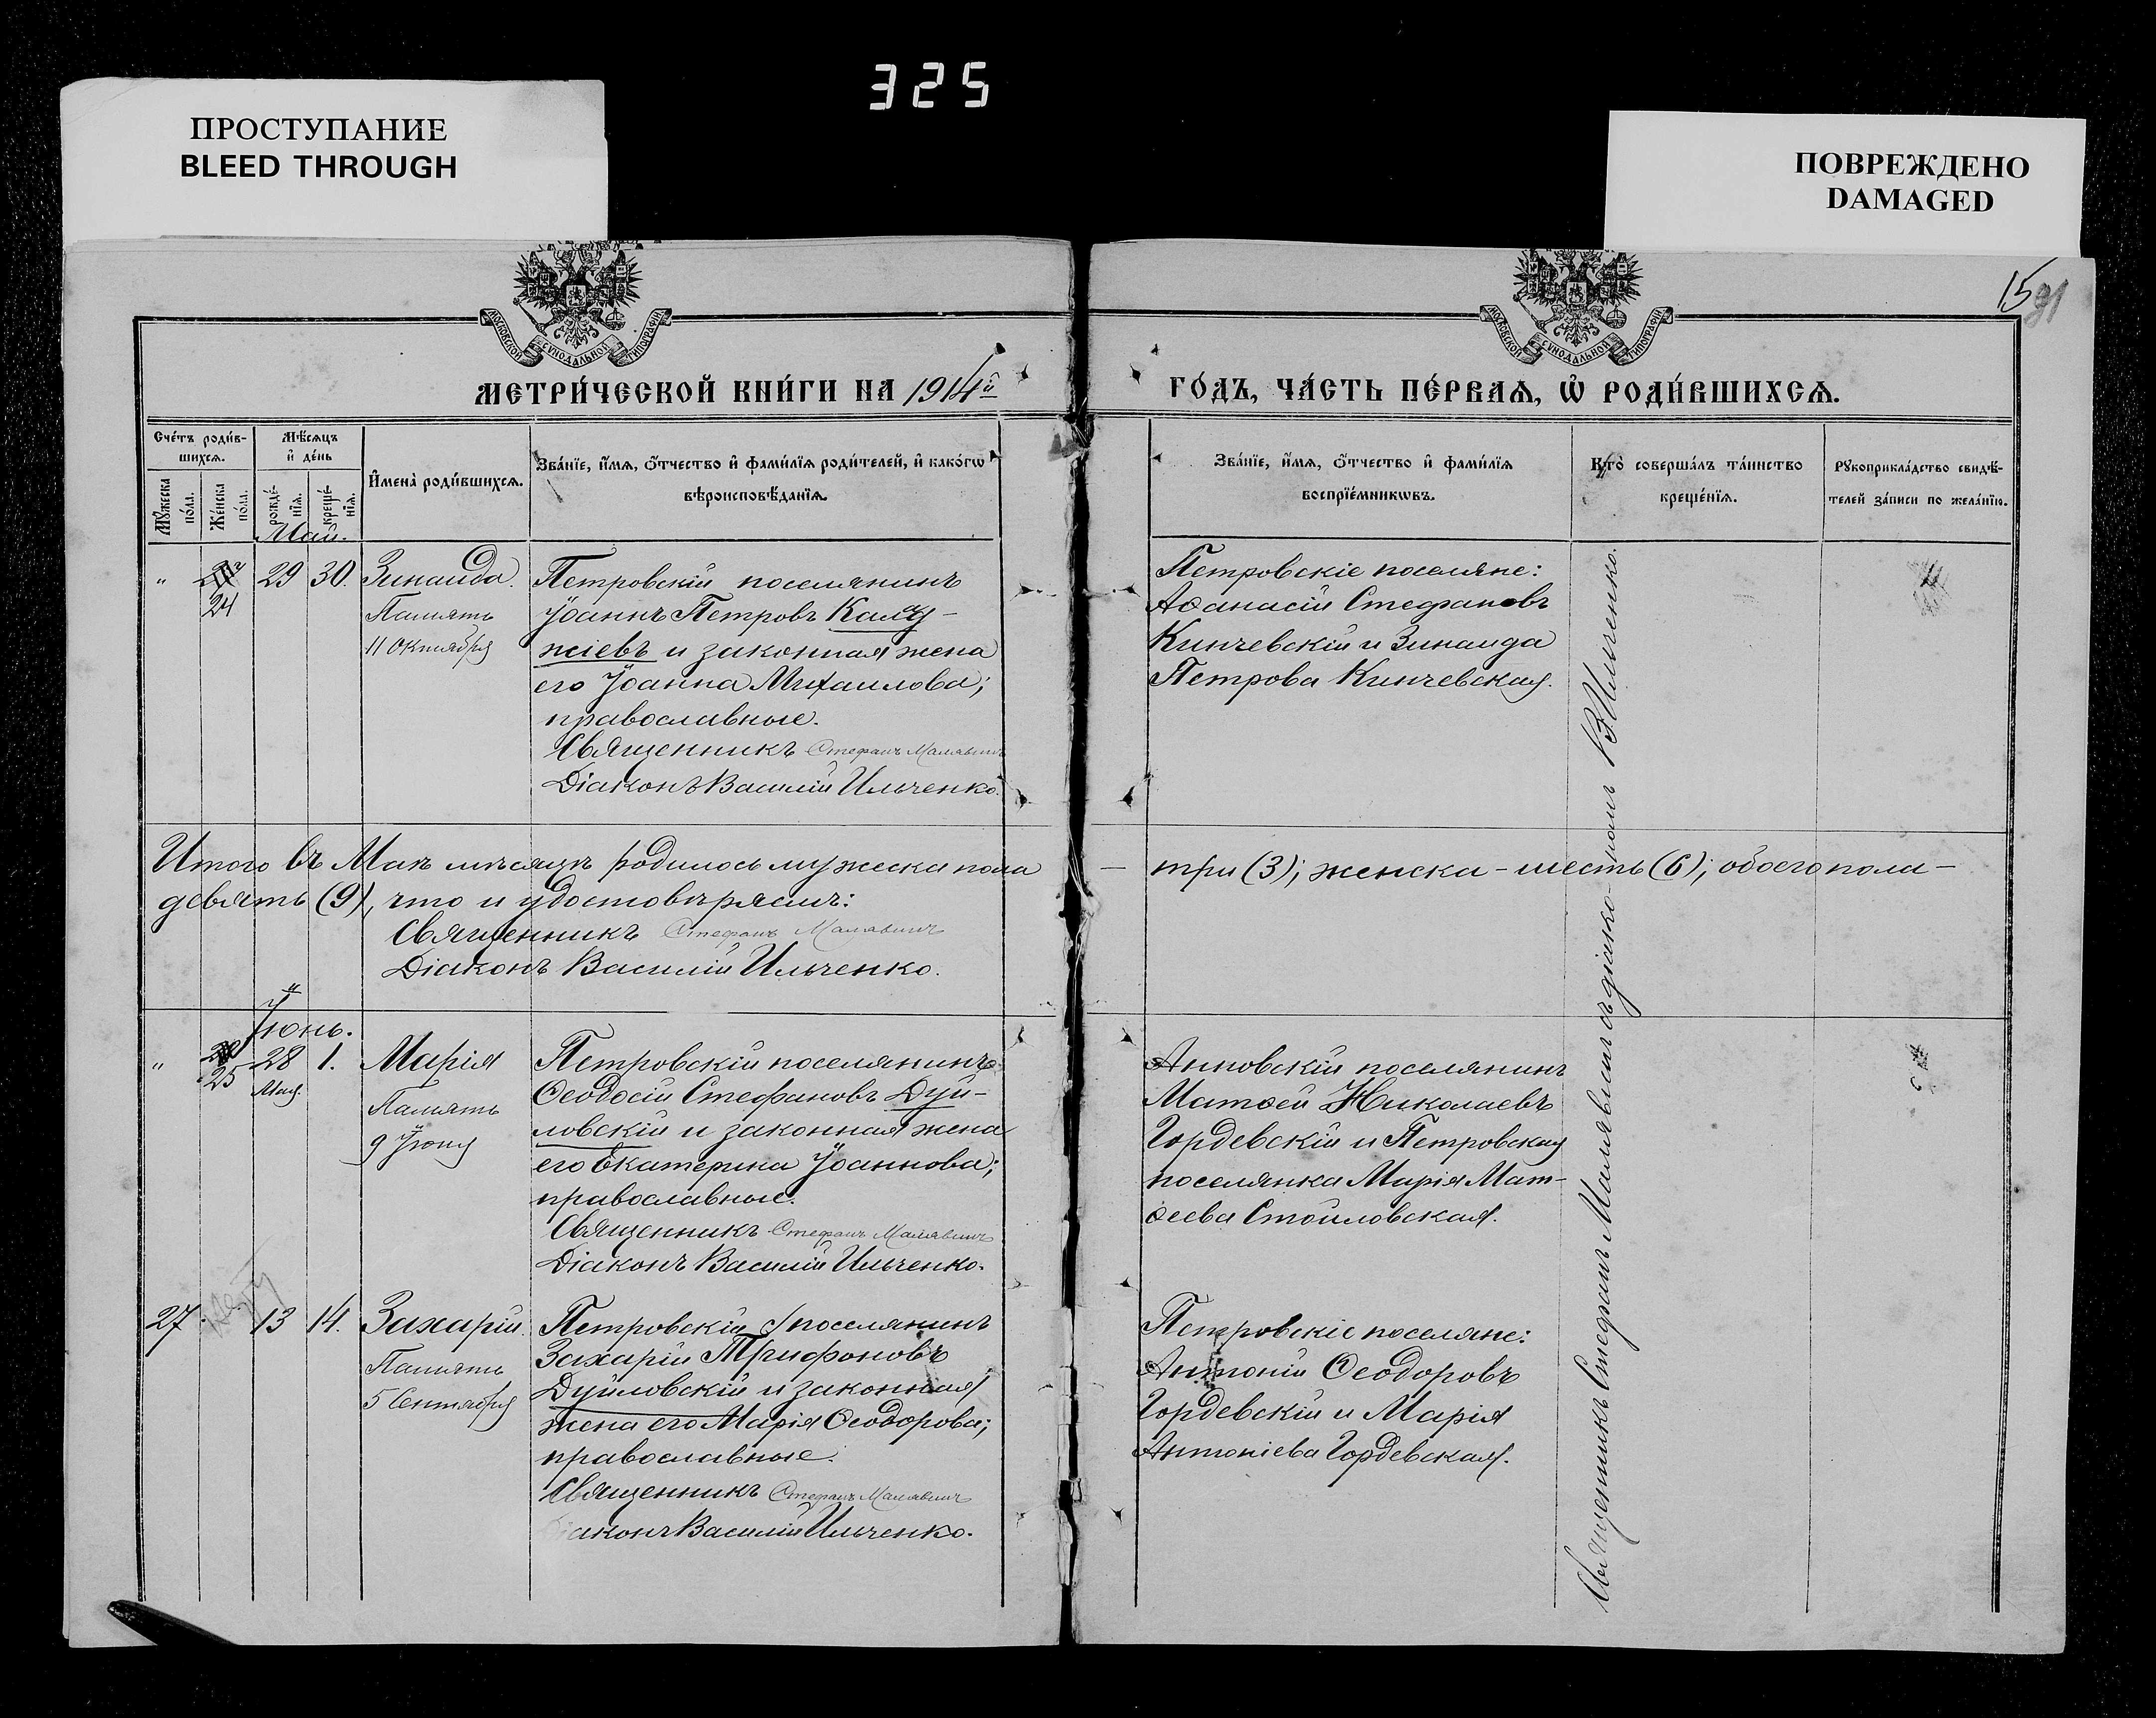 325
ПРОСТУПАНИЕ
BLEED THROUGH
ПОВРЕЖДЕНО
DAMAGED
МОСКОВСКОЙ СѴНОДАЛЬНОЙ ТИПОГРАФІИ
МОСКОВСКОЙ СѴНОДАЛЬНОЙ ТИПОГРАФІИ
15
91
МЕТРИ́ЧЕСКОЙ КНИ́ГИ НА 1914й
ГО́ДЪ, ЧА́СТЬ ПЕ́РВАѦ, Ѡ҆ РОДИ́ВШИХСѦ.
Сче́тъ роди́в-
шихсѧ.
Мѣ́сѧцъ
и҆ де́нь
Мꙋ́жеска
по́ла.
Же́нска
по́ла.
рожде́-
нїѧ.
креще́-
нїѧ.
И҆мена̀ роди́вшихсѧ.
Зва́нїе, и҆́мѧ, ѻ҆́тчество и҆ фами́лїѧ роди́телей, и҆ како́гѡ
вѣроисповѣ́данїѧ.
Зва́нїе, и҆́мѧ, ѻ҆́тчество и҆ фами́лїѧ
воспрїе́мникѡвъ.
Кто̀ соверша́лъ та́инство
креще́нїѧ.
Рꙋкоприкла́дство свидѣ́-
телей за́писи по жела́нїю.
Май.
" 24 29 30. Зинаида.
Память
11 Октября
Петровскій поселянинъ
Іоаннъ Петровъ Калу-
жіевъ и законная жена
его Іоанна Михаилова;
православные.
Священникъ Стефанъ Малявинъ
Діаконъ Василій Ильченко.
Петровскіе поселяне:
Аѳанасій Стефановъ
Кинчевскій и Зинаида
Петрова Кинчевская.
Итого въ Маѣ мѣсяцѣ родилось мужеска пола — три (3); женска - шесть (6); обоего пола —
девять (9), что и удостовѣряемъ:
Священникъ Стефанъ Малявинъ
Діаконъ Василій Ильченко.
Іюнь.
" 25 28 1. Марія
Мая.
Память
9 Іюня
Петровскій поселянинъ
Ѳеодосій Стефановъ Дуй-
ловскій и законная жена
его Екатерина Іоаннова;
православные.
Священникъ Стефанъ Малявинъ
Діаконъ Василій Ильченко.
Анновскій поселянинъ
Матѳей Николаевъ
Гордевскій и Петровская
поселянка Марія Мат-
ѳеева Стоиловская.
27 13 14. Захарій.
Память
5 Сентября
Петровскій поселянинъ
Захарій Трифоновъ
Дуйловскій и законная
жена его Марія Ѳеодорова;
православные.
Священникъ Стефанъ Малявинъ
Діаконъ Василій Ильченко.
Петровскіе поселяне:
Антоній Ѳеодоровъ
Гордевскій и Марія
Антоніева Гордевская.
Священникъ Стефанъ Малявинъ съ діакономъ В. Ильченко.